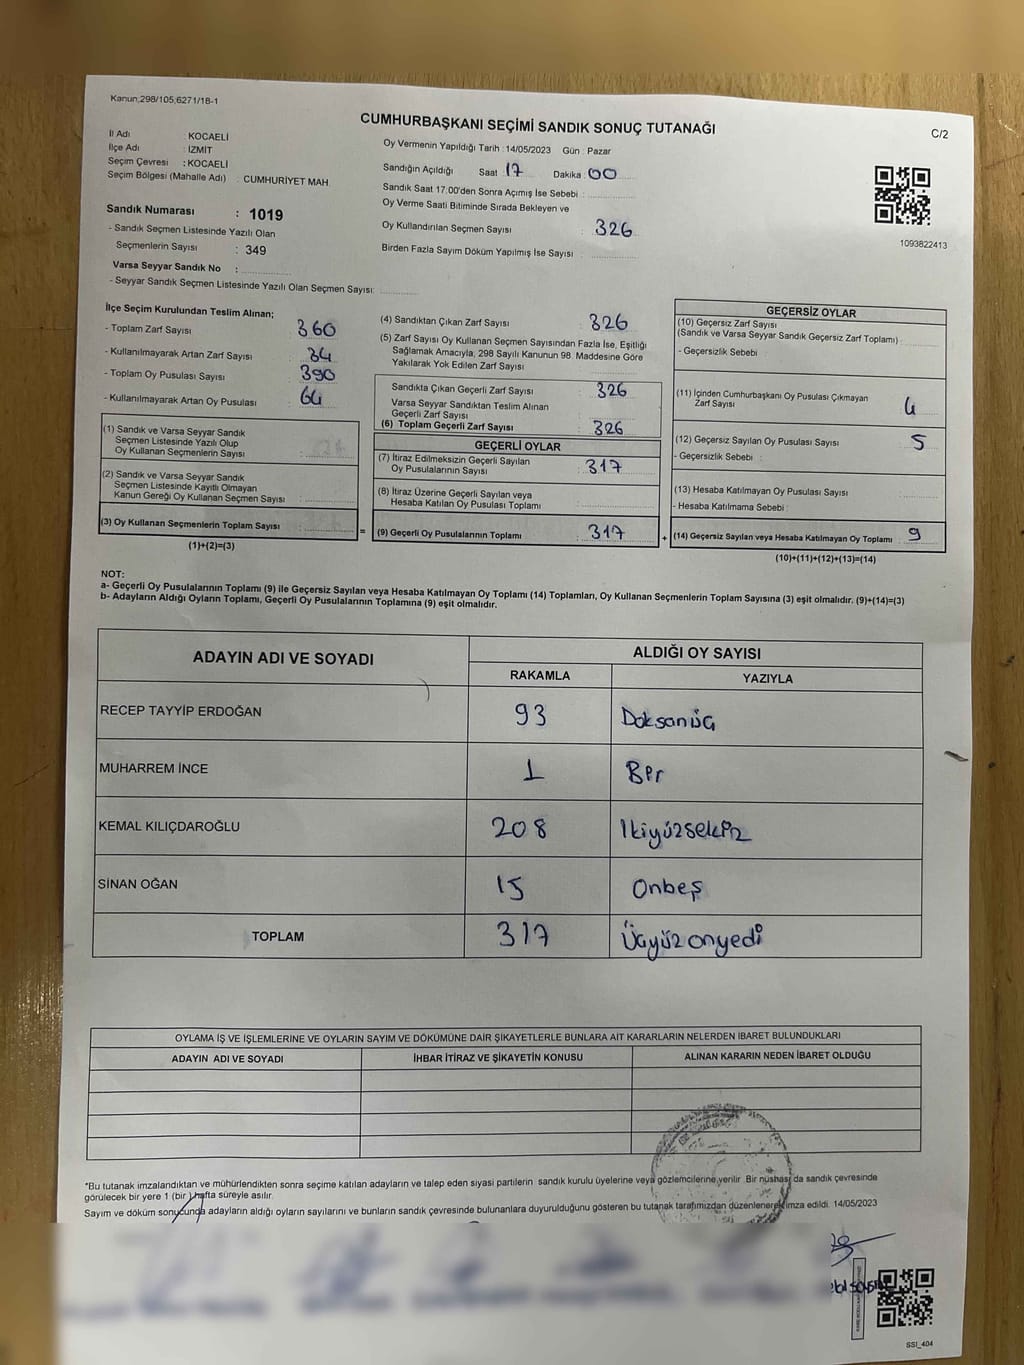 Kanun,298/105,6271/18-1
CUMHURBAŞKANI SEÇİMİ SANDIK SONUÇ TUTANAĞI
C/2
İl Adı : KOCAELİ
İlçe Adı : İZMİT
Seçim Çevresi : KOCAELİ
Seçim Bölgesi (Mahalle Adı) : CUMHURİYET MAH.
Sandık Numarası : 1019
- Sandık Seçmen Listesinde Yazılı Olan
Seçmenlerin Sayısı : 349
Varsa Seyyar Sandık No :
- Seyyar Sandık Seçmen Listesinde Yazılı Olan Seçmen Sayısı:
Oy Vermenin Yapıldığı Tarih : 14/05/2023 Gün : Pazar
Sandığın Açıldığı Saat : 17 Dakika : 00
Sandık Saat 17:00'den Sonra Açımış İse Sebebi :
Oy Verme Saati Bitiminde Sırada Bekleyen ve
Oy Kullandırılan Seçmen Sayısı : 326
Birden Fazla Sayım Döküm Yapılmış İse Sayısı :
1093822413
İlçe Seçim Kurulundan Teslim Alınan;
- Toplam Zarf Sayısı : 360
- Kullanılmayarak Artan Zarf Sayısı : 34
- Toplam Oy Pusulası Sayısı : 390
- Kullanılmayarak Artan Oy Pusulası : 64
(1) Sandık ve Varsa Seyyar Sandık
Seçmen Listesinde Yazılı Olup
Oy Kullanan Seçmenlerin Sayısı :
(2) Sandık ve Varsa Seyyar Sandık
Seçmen Listesinde Kayıtlı Olmayan
Kanun Gereği Oy Kullanan Seçmen Sayısı :
(3) Oy Kullanan Seçmenlerin Toplam Sayısı :
(1)+(2)=(3)
=
(4) Sandıktan Çıkan Zarf Sayısı : 326
(5) Zarf Sayısı Oy Kullanan Seçmen Sayısından Fazla İse, Eşitliği
Sağlamak Amacıyla, 298 Sayılı Kanunun 98. Maddesine Göre
Yakılarak Yok Edilen Zarf Sayısı :
Sandıkta Çıkan Geçerli Zarf Sayısı : 326
Varsa Seyyar Sandıktan Teslim Alınan
Geçerli Zarf Sayısı :
(6) Toplam Geçerli Zarf Sayısı : 326
GEÇERLİ OYLAR
(7) İtiraz Edilmeksizin Geçerli Sayılan
Oy Pusulalarının Sayısı : 317
(8) İtiraz Üzerine Geçerli Sayılan veya
Hesaba Katılan Oy Pusulası Toplamı :
(9) Geçerli Oy Pusulalarının Toplamı : 317
+
GEÇERSİZ OYLAR
(10) Geçersiz Zarf Sayısı
(Sandık ve Varsa Seyyar Sandık Geçersiz Zarf Toplamı) :
- Geçersizlik Sebebi
(11) İçinden Cumhurbaşkanı Oy Pusulası Çıkmayan
Zarf Sayısı : 4
(12) Geçersiz Sayılan Oy Pusulası Sayısı : 5
- Geçersizlik Sebebi :
(13) Hesaba Katılmayan Oy Pusulası Sayısı :
- Hesaba Katılmama Sebebi :
(14) Geçersiz Sayılan veya Hesaba Katılmayan Oy Toplamı : 9
(10)+(11)+(12)+(13)=(14)
NOT:
a- Geçerli Oy Pusulalarının Toplamı (9) ile Geçersiz Sayılan veya Hesaba Katılmayan Oy Toplamı (14) Toplamları, Oy Kullanan Seçmenlerin Toplam Sayısına (3) eşit olmalıdır. (9)+(14)=(3)
b- Adayların Aldığı Oyların Toplamı, Geçerli Oy Pusulalarının Toplamına (9) eşit olmalıdır.
ADAYIN ADI VE SOYADI
ALDIĞI OY SAYISI
RAKAMLA YAZIYLA
RECEP TAYYİP ERDOĞAN 93 Doksanüç
MUHARREM İNCE 1 Bir
KEMAL KILIÇDAROĞLU 208 İkiyüzsekiz
SİNAN OĞAN 15 Onbeş
TOPLAM 317 Üçyüzonyedi
OYLAMA İŞ VE İŞLEMLERİNE VE OYLARIN SAYIM VE DÖKÜMÜNE DAİR ŞİKAYETLERLE BUNLARA AİT KARARLARIN NELERDEN İBARET BULUNDUKLARI
ADAYIN ADI VE SOYADI İHBAR İTİRAZ VE ŞİKAYETİN KONUSU ALINAN KARARIN NEDEN İBARET OLDUĞU
*Bu tutanak imzalandıktan ve mühürlendikten sonra seçime katılan adayların ve talep eden siyasi partilerin sandık kurulu üyelerine veya gözlemcilerine verilir. Bir nüshası da sandık çevresinde
görülecek bir yere 1 (bir ) hafta süreyle asılır.
Sayım ve döküm sonucunda adayların aldığı oyların sayılarını ve bunların sandık çevresinde bulunanlara duyurulduğunu gösteren bu tutanak tarafımızdan düzenlenerek imza edildi. 14/05/2023
SSI_404